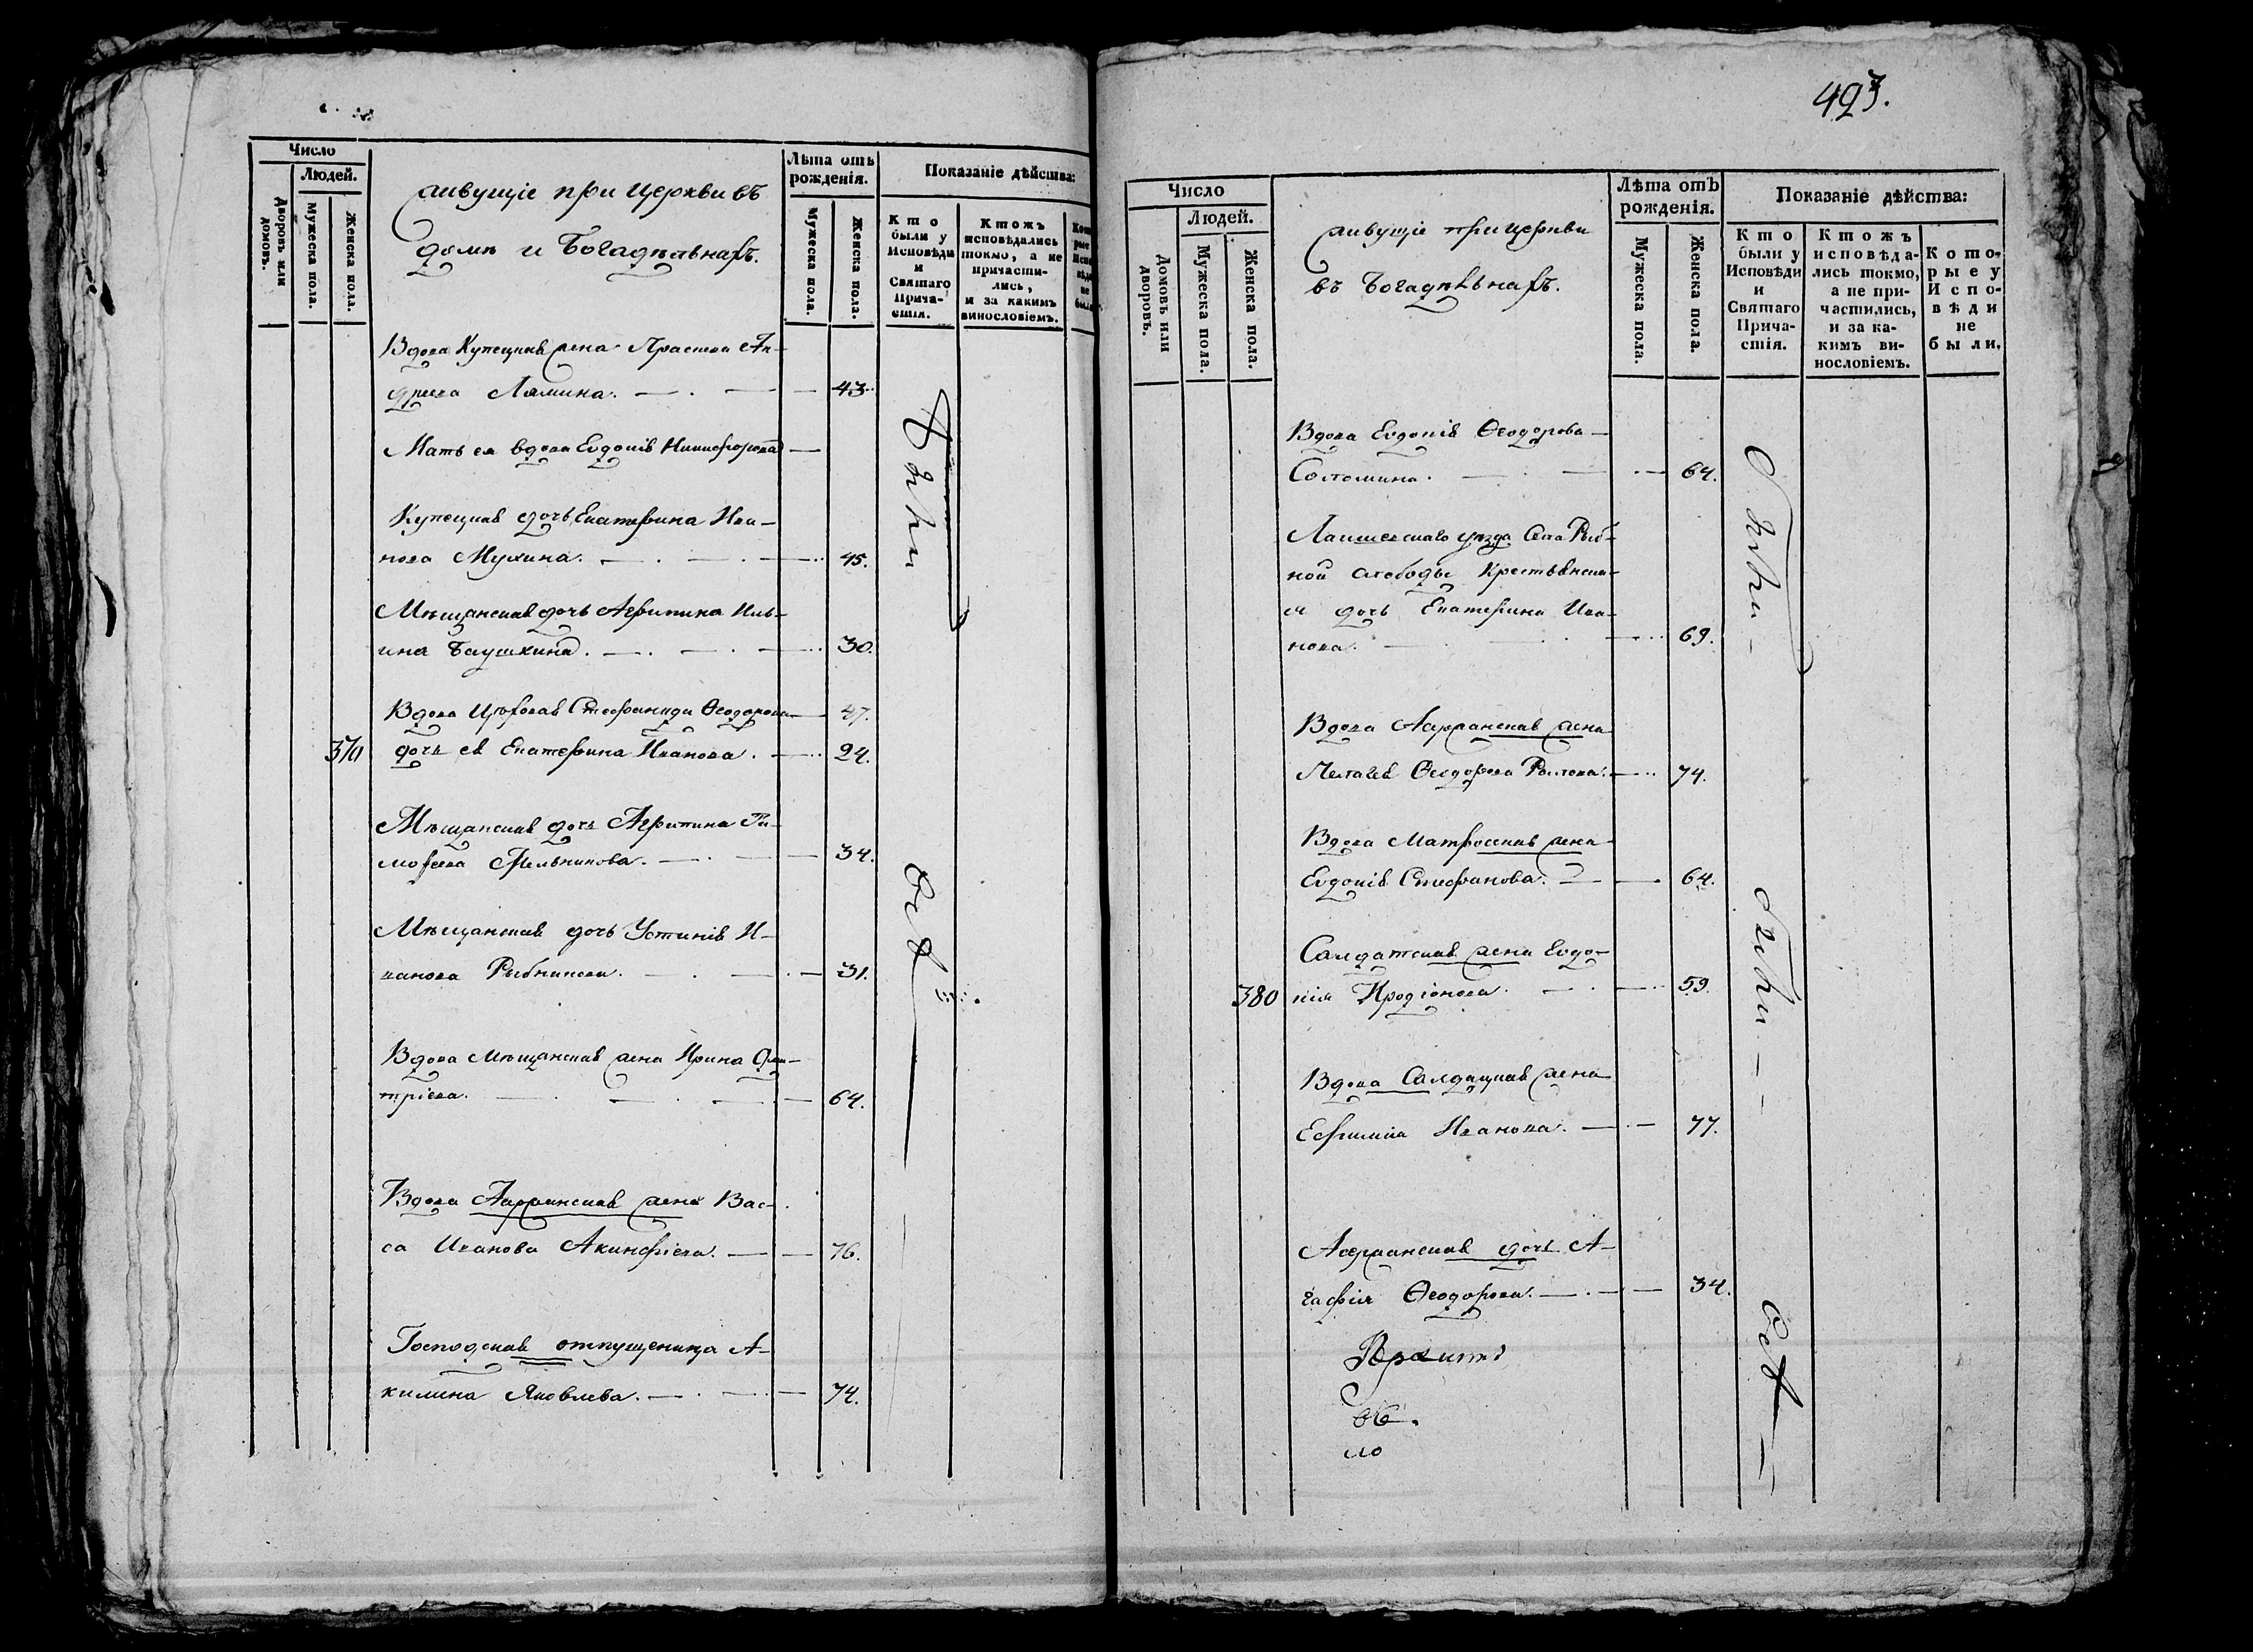 Число
Людей.
Дворовъ или домовъ.
Мужеска пола.
Женска пола.
живущіе при церкви въ
домѣ и Богадѣльнахъ.
Лѣта отъ
рожденія.
Мужеска пола.
Женска пола.
Показаніе дѣйства:
Кто
были у
Исповѣди
и
Святаго
Прича-
стія.
Ктожъ
исповѣдались
токмо, а не
причасти-
лись,
и за какимъ
винословіемъ.
Вдова Купецкая жена Прасковья Ан-
дреева Лямина. 43.
Мать ея вдова Евдокія Никифорова
Купецкая дочь Екатерина Ива-
нова Мухина. 45.
Мѣщанская дочь Агрипина Иль-
ина 30.
Вдова Стефанида Ѳеодорова 47.
370 дочь ея Екатерина Иванова. 24.
Мѣщанская дочь Агрипина Ти-
мофеева 34.
Мѣщанская дочь Устинія И-
ванова Рыбникова. 31.
Вдова Мѣщанская жена Ирина Дми-
тріева. 64.
Вдова жена Вас-
са Иванова Акинфіева. 76.
Господская отпущеница А-
килина Яковлева. 74.
были
всѣ
493.
Число
Людей.
Домовъ или дворовъ.
Мужеска пола.
Женска пола.
живущіе при церкви
въ Богадѣльнахъ.
Лѣта отЪ
рожденія.
Мужеска пола.
Женска пола.
Показаніе дѣйства:
Кто
были у
Исповѣди
и
Святаго
Прича-
стія.
Ктожъ
исповѣда-
лись токмо,
а не при-
частились,
и за ка-
кимъ ви-
нословіемъ.
Кото-
рые у
Испо-
вѣди
не
были.
Вдова Евдокія Ѳеодорова
Соломина. 64.
Лаишевскаго уѣзда Села Рыб-
ной слободы Крестьянска-
я дочь Екатерина Ива-
нова. 69.
Вдова жена
Пелагея Ѳеодорова 74.
Вдова Матроская жена
Евдокія Стефанова. 64.
Салдатская жена Евдо-
380 кія Иродіонова. 59.
Вдова Салдацкая жена
Ефимия Иванова. 77.
дочь А-
гафія Ѳеодорова. 34.
были
были
всѣ